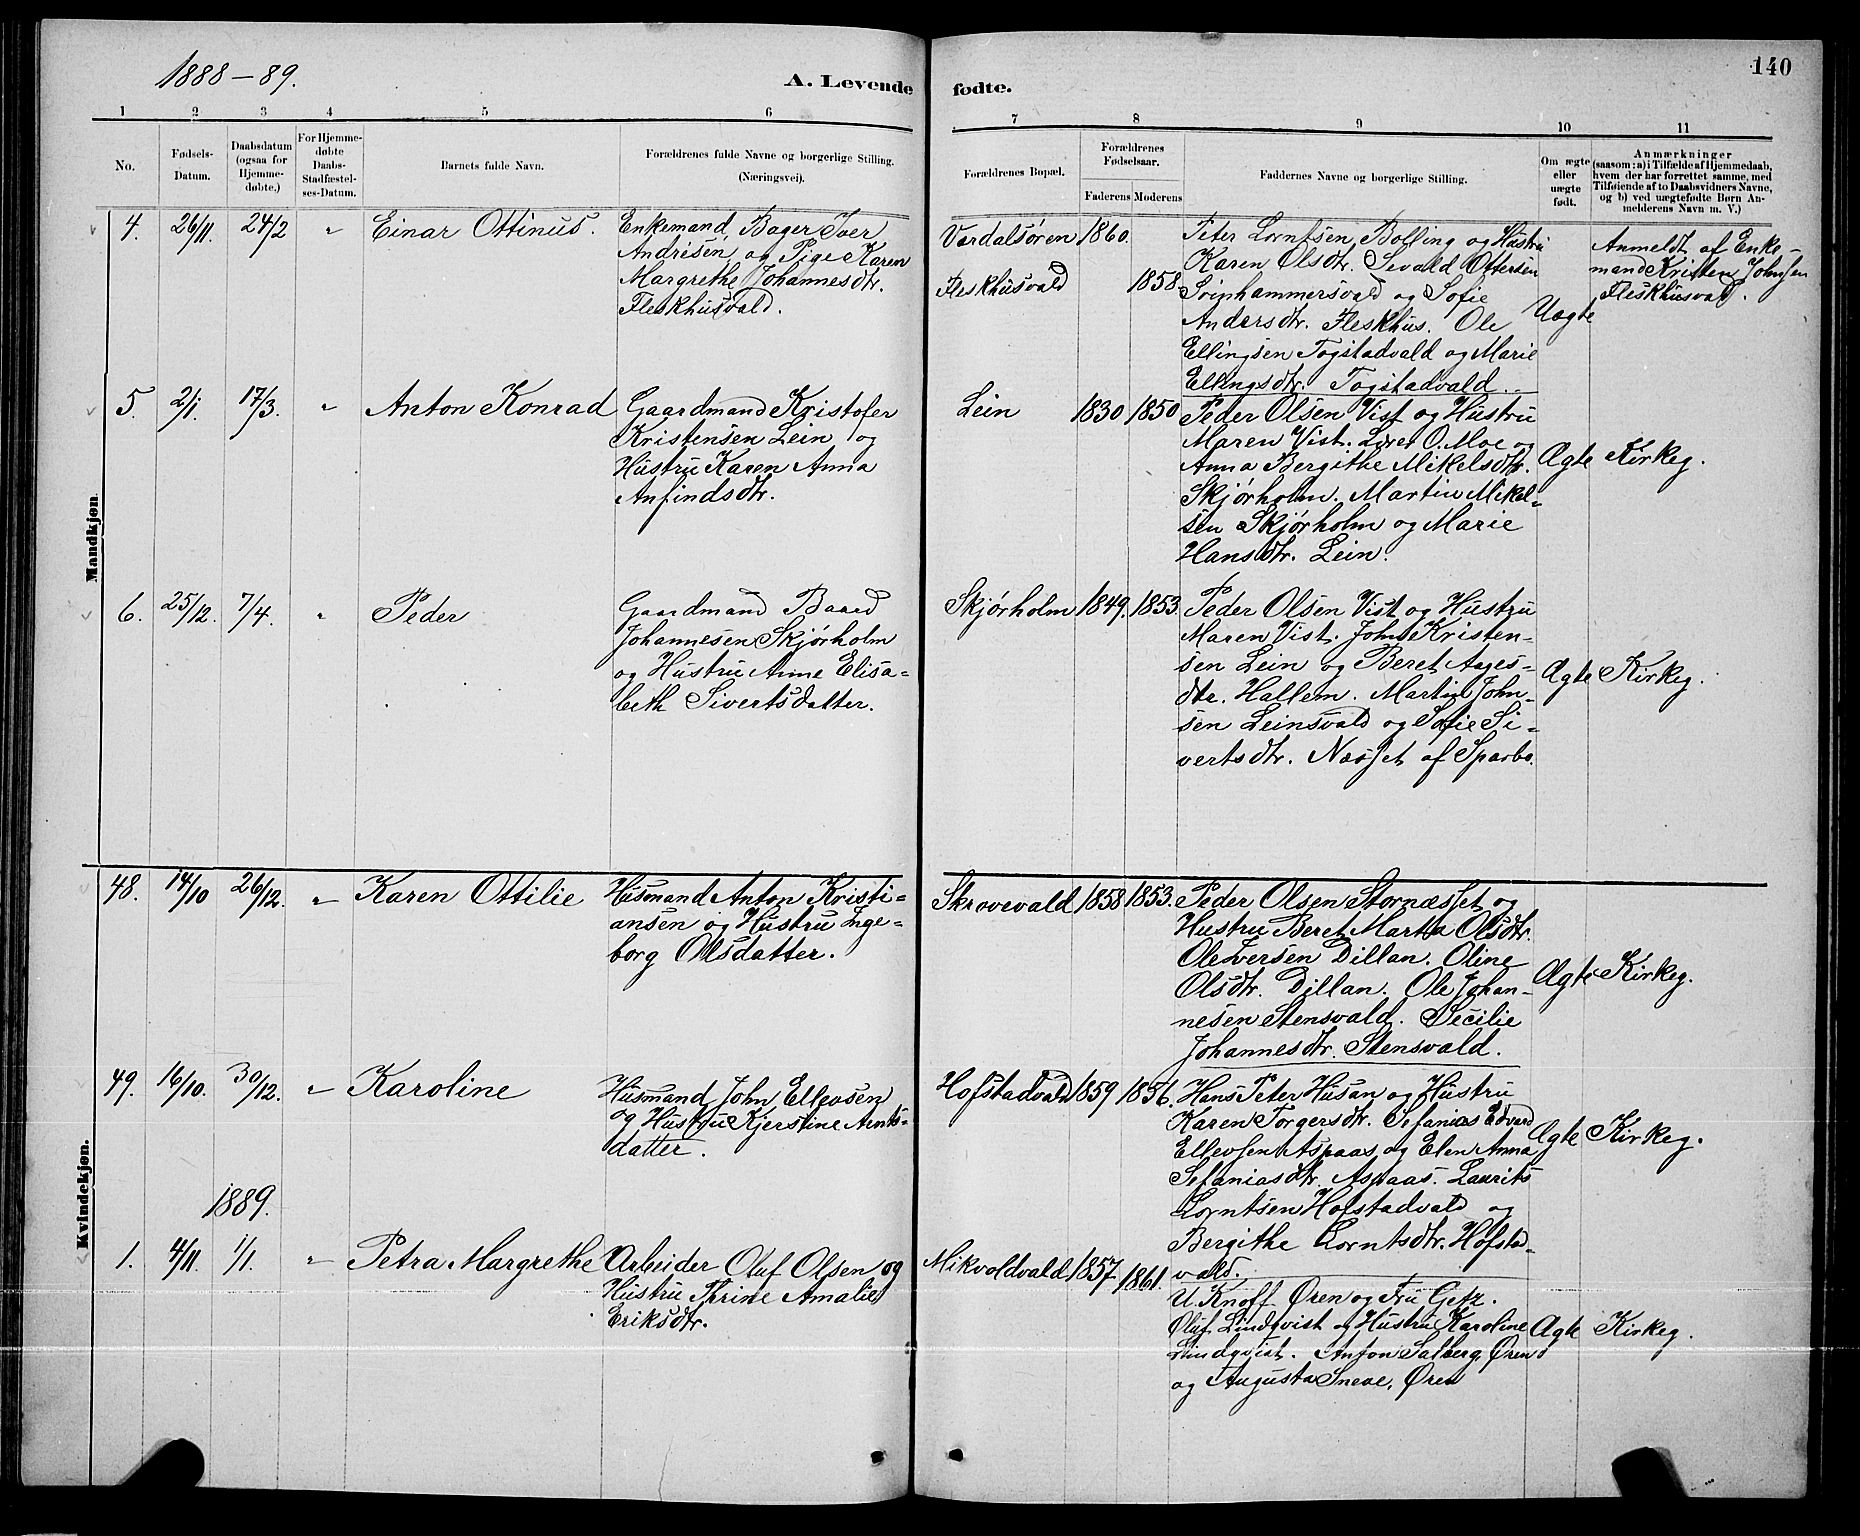 1888-89.
A. Levende
fødte.
140
1 2 3 4 5 6 7 8 9 10 11
No.
Fødsels-
Datum.
Daabsdatum
(ogsaa for
Hjemme-
døbte.)
For Hjemme-
døbte
Daabs-
Stadfæstel-
ses-Datum.
Barnets fulde Navn.
Forældrenes fulde Navne og borgerlige Stilling.
(Næringsvei).
Forældrenes Bopæl.
Forældrenes
Fødselsaar.
Faderens Moderens
Faddernes Navne og borgerlige Stilling.
Om ægte
eller
uægte
født.
Anmærkninger
(saasom: a) i Tilfælde af Hjemmedaab,
hvem der har forrettet samme, med
Tilføiende af to Daabsvidners Navne,
og b) ved uægtefødte Børn An-
melderens Navn m. V.)
Mandkjøn
4. 26/11. 24/2 " Einar Ottinus.
Enkemand, Bager Iver
Andresen, og Pige Karen
Margrethe Johannesdtr.
Fleskhusvald.
Værdalsøren 1860.
Fleskhusvald 1858.
Peter Lorntsen Bolling og Hustru
Karen Olsdtr. Sevald Ottersen
Svinhammersvald og Sofie
Andersdtr. Fleskhus. Ole
Ellingsen Togstadvald og Marie
Ellingsdtr. Togstadvald.
Uægte
Anmeldt af Enke-
mand Kristen Johnsen
Fleskhusvald.
5. 2/1. 17/3. " Anton Konrad
Gaardmand Kristofer
Kristensen Lein og
Hustru Karen Anna
Anfindsdtr.
Lein 1830 1850
Peder Olsen Vist og Hustru
Maren Vist. Lorns O. Moe og
Anna Bergithe Mikelsdtr.
Skjørholm. Martin Mikel-
sen Skjørholm og Marie
Hansdtr. Lein.
Ægte Kirkeg.
6. 25/12. 7/4. " Peder
Gaardmand Baard
Johannesen Skjørholm
og Hustru Anne Elisa-
beth Sivertsdatter.
Skjørholm 1849. 1853.
Peder Olsen Vist og Hustru
Maren Vist. John Kristen-
sen Lein og Beret Aages-
dtr. Hallem. Martin John-
sen Leinsvald og Sofie Si-
vertsdtr. Næsset af Sparbo.
Ægte Kirkeg.
Kvindekjøn.
48. 14/10 26/12. " Karen Ottilie
Husmand Anton Kristi-
ansen og Hustru Inge-
borg Olsdatter.
Skrovevald 1858 1853.
Peder Olsen Stornæsset og
Hustru Beret Marta Olsdtr.
Ole Iversen Dillan. Oline
Olsdtr. Dillan. Ole Johan-
nesen Stensvald. Secilie
Johannesdtr. Stensvald.
Ægte Kirkeg.
49. 16/10. 30/12. " Karoline
Husmand John Ellevsen
og Hustru Kjerstine Arnts-
datter.
Hofstadvald 1859 1856.
Hans Peter Husan og Hustru
Karen Torgersdtr. Sefanias Edvard
Ellevsen Aspaas og Elen Anna
Sefaniasdtr. Aspaas. Laurits
Lorntsen Hofstadvald og
Bergithe Lorntsdtr. Hofsta-
vald.
Ægte Kirkeg.
1889.
1. 4/11. 1/1. " Petra Margrethe
Arbeider Oluf Olsen og
Hustru Trine Amalie
Eriksdtr.
Mikvoldvald 1857. 1861.
U. Knoff Øren og Fru Getz.
Oluf Lindqvist og Hustru Karoline
Lindqvist. Anton Salberg, Øren
og Augusta Sneve, Øren
Ægte Kirkeg.